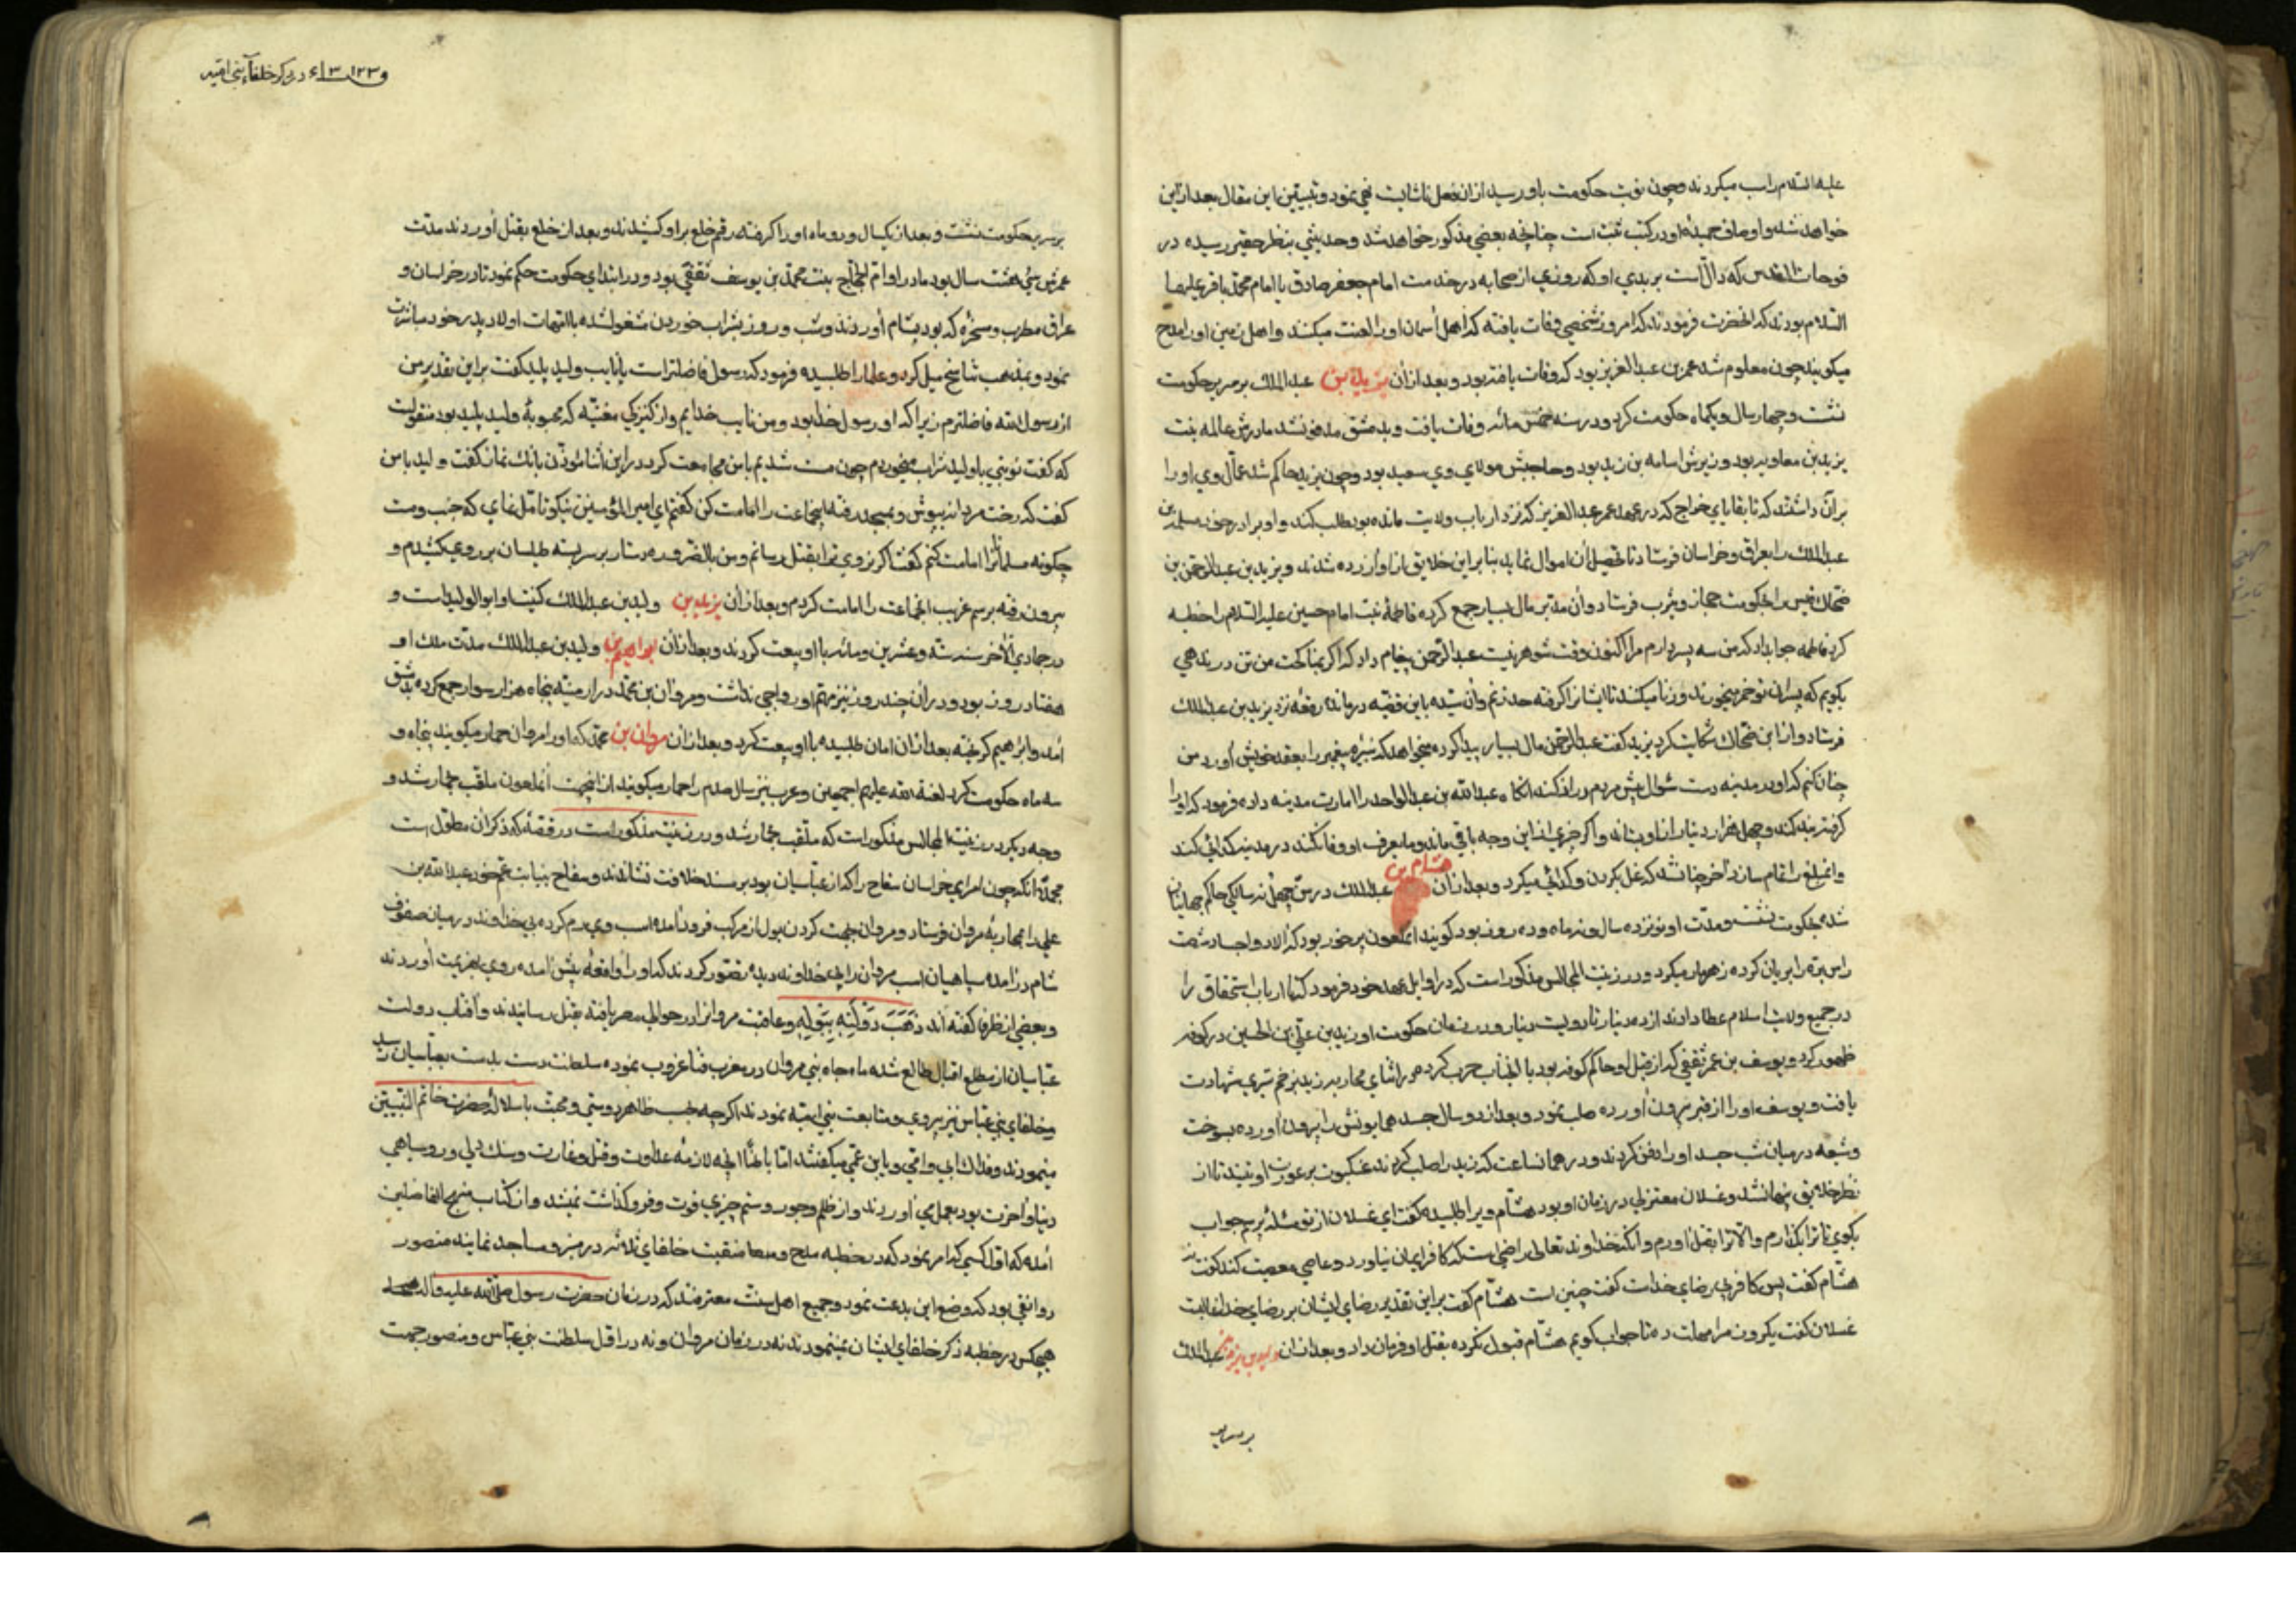 علیه السلام را سب میکردند و چون نوبت حکومت باو رسید ازان فعل ناشایست نهی نمود و تبیین این مقال بعد ازین
خواهد شد و اوصاف حمیدهٔ او در کتب ثبت است چنانچه بعضی مذکور خواهد شد و حدیثی بنظر حقیر رسیده در
فوحات القدس که دالّ است بر بدی او که روزی از صحابه در خدمت امام جعفر صادق یا امام محمد باقر علیهما
السّلام بودند که آنحضرت فرمودند که امروز شخصی وفات یافته که اهل آسمان او را لعنت میکنند و اهل زمین او را مدح
میکویند چون معلوم شد عمر بن عبد العزیز بود که وفات یافته بود و بعد ازان یزید بن عبد الملک بر سریر حکومت
نشست و چهار سال و یکماه حکومت کرد و در سنه خمس مائه وفات یافت و بدمشق مدفون شد مادرش عاتکه بنت
یزید بن معاویه بود و زیرش اسامه بن زید بود و حاجبش مولای وی سعید بود و چون یزید حاکم شد عمّال وی او را
بر آن داشتند که تا بقایای خراج که در عهد عمر عبد العزیز که نزد ارباب ولایت مانده بود طلب کند و او برادر خود مسلمة بن
عبد الملک را بعراق و خراسان فرستاد تا تحصیل آن اموال نماید بنا براین خلایق ازو آزرده شدند و یزید بن عبد الرحمن بن
ضحّاک قیس را بحکومت حجاز و یثرب فرستاد و آن مدبّر مال بسیار جمع کرده فاطمهٔ بنت امام حسین علیه السّلام را خطبه
کرد فاطمه جواب داد که من سه پسر دارم مرا اکنون وقت شوهر نیست عبد الرحمن پیغام داد که اگر بمناکحت من تن در ندهی
بکویم که پسران تو خمر میخورند و زنا میکنند تا ایشانرا کرفته حد زنم و آن سیّده باین قضیّه درمانده رقعهٔ نزد یزید بن عبد الملک
فرستاد و از ابن ضحّاک شکایت کرد یزید کفت عبد الرحمن مال بسیار پیدا کرده میخواهد که نبیرهٔ پیغمبر را بعقد خویش آورد من
چنان کنم که او در مدینه دست سؤال پیش مردم دراز کند آنگاه عبد الله بن عبد الواحد را امارت مدینه داده فرمود که او را
کرفته بند کند و چهل هزار دینار ازاو بستاند و اگر چیزی ازین وجه باقی ماند و مایعرف او وفا نکند در مدینه کدائی کند
وآنمبلغ را تمام سازد آخر چنان شد که عمل بکردن و کدائی میکرد و بعد ازان هشام بن عبد الملک در سنّ چهل نه سالکی حاکم جهانیان
شده بحکومت نشست و مدّت او نوزده سال و نه ماه و ده روز بود کویند آنملعون پر خور بود که الا رواجا دشصت
راس برّه را بریان کرده زهرمار میکرد و در زینت المجالس مذکور است که در اوایل عهد خود فرمود که تا ارباب استحقاق را
در جمیع ولایت اسلام عطا دادند از ده دینار تا دویست دینار و در زمان حکومت او زید بن علی بن الحسین در کوفه
ظهور کرد و یوسف بن عمر ثقفی که از قبل او حاکم کوفه بود با آنجناب حرب کرد در اثنای محاربه زید بزخم تیری شهادت
یافت و یوسف او را از قبر بیرون آورده صلب نمود و بعد از دو سال جسد همایونش را بیرون آورده بسوخت
و شیعه در میان شب جسد او را دفن کردند و در همان ساعت که زید را صلب کردند عنکبوت بر عورت او تنید تا از
نظر خلایق پنهان شد و غسلان معتزلی در زمان او بود هشام ویرا طلبیده کفت ای غسلان از تو مسئله پرسم جواب
بکوی تا ترا بگذارم والّا ترا بقتل آورم وانکه خداوند تعالی راضی است که کافر ایمان نیاورد و عاصی معصیت کند کفت نه
هشام کفت پس کافری برضای خداست کفت چنین است هشام کفت بر این تقدیر رضای ایشان بر رضای خدا غالبست
غسلان کفت یکروز مرا مهلت ده تا جواب کویم هشام قبول نکرده بقتل او فرمان داد و بعد ازان ولید بن یزید بن عبد الملک
بر سریر
در ذکر خلفآء بنی امّیه
بر سریر حکومت نشست و بعد از یکسال و دو ماه او را کرفته رقم خلع بر او کشیدند و بعد از خلع بقتل آوردند مدّت
عمرش سی هشت سال بود مادر او امّ الحجّاج بنت محمّد بن یوسف ثقفی بود و در ابتدای حکومت حکم نمود تا در خراسان و
عراق مطرب و مسخره که بود بشام آوردند و شب و روز بشراب خوردن مشغول شده با امّهات اولاد پدر خود مباشرت
نمود و بمذهب تناسخ میل کرد و علما را طلبیده فرمود که رسول فاضلتر است یا نایب ولید پلید کفت بر این تقدیر من
از رسول الله فاضلترم زیرا که او رسول خدا بود و من نایب خدایم و از کنیزکی مغنیّه که محبوبهٔ ولید پلید بود منقولست
که کفت نوبتی با ولید شراب میخوردم چون مست شدیم با من مجامعت کرد در این اثنا مؤذّن بانک نماز کفت ولید با من
کفت که رخت مردانه بپوش و بمسجد رفته اینجماعت را امامت کن کفتم ای امیر المؤمنین نیکو تامّل نمای که جنب و مست
چکونه مسلمانانرا امامت کنم کفت اگر نروی ترا بقتل رسانم و من بالضّروره دستار بر سر بسته طیلسان بر روی کشیدم و
بیرون رفته برسم غریب انجماعت را امامت کردم و بعد ازان یزید بن ولید بن عبد الملک کنیت او ابو الولید است و
در جمادی الآخر سنه ستّه و عشرین و مائه با او بیعت کردند و بعد ازان ابراهیم بن ولید بن عبد الملک مدّت ملک او
هفتاد روز بود و در آن چند روز نیز مهمّ او رواجی نداشت و مروان بن محمّد در ارمنیّه پنجاه هزار سوار جمع کرده بدمشق
آمد و ابراهیم کریخته بعد ازان امان طلبیده با او بیعت کرد و بعد ازان مروان بن محمّد که او را مروان حمار میکویند پنجاه و
سه ماه حکومت کرد لعنة الله علیهم اجمعین و عرب نیز سال صدم را حمار میکویند از اینجهت آنملعون ملقّب بحمار شد و
وجه دیکر در زینت المجالس مذکور است که ملقّب بحمار شد و در زینت مذکور است در قصّهٔ که ذکر آن مطوّل است
مجملا آنکه چون امرای خراسان سفاح را که از عبّاسیان بود بر مسند خلافت نشاندند و سفاح بنیابت عمّ خود عبد الله بن
علی را بمحاربهٔ مروان فرستاد و مروان جهت کردن بول از مرکب فرود آمده اسب وی رم کرده بی خداوند در میان صفوف
شام در آمده سپاهیان اسب مروان را بی خداوند دیده تصوّر کردند که او را واقعهٔ پیش آمده روی بهزیمت آوردند
و بعضی از ظرفا کفته اند ذَهَبَتْ دَوْلَتُهُ بِبَوْلِهِ و عاقبت مروانرا در حوالی مصر یافته بقتل رسانیدند و آفتاب دولت
عبّاسیان از مطلع اقبال طالع شده ماه جاه بنی مروان در مغرب فنا غروب نموده سلطنت دست بدست بعبّاسیان رسید
و خلفای بنی عبّاس نیز پیروی و متابعت بنی امیّه نمودند اکرچه بحسب ظاهر دوستی و محبّت با سلالهٔ حضرت خاتم النّبیین
مینمودند و فداک ابی و امّی و یا بن عمّی میکفتند امّا باطنًا آنچه لازمهٔ عداوت و قتل و غارت و سنک دلی و روسیاهی
دنیا و آخرت بود بعمل می آوردند و از ظلم و جور و ستم چیزی فوت و فروکذاشت نمیشد و از کتاب منهج الفاضلین
آمده که اوّل کسی که امر نمود که در خطبه مدح و منقبت خلفای ثلاثه در منبر و مساجد نمایند منصور
دوانقی بود که وضع این بدعت نمود و جمیع اهل سنّت معترفند که در زمان حضرت رسول صلّی الله علیه و آله
هیچکس در خطبه ذکر خلفای ایشان نمینمودند نه در زمان مروان و نه در اوّل سلطنت بنی عبّاس و منصور جهت